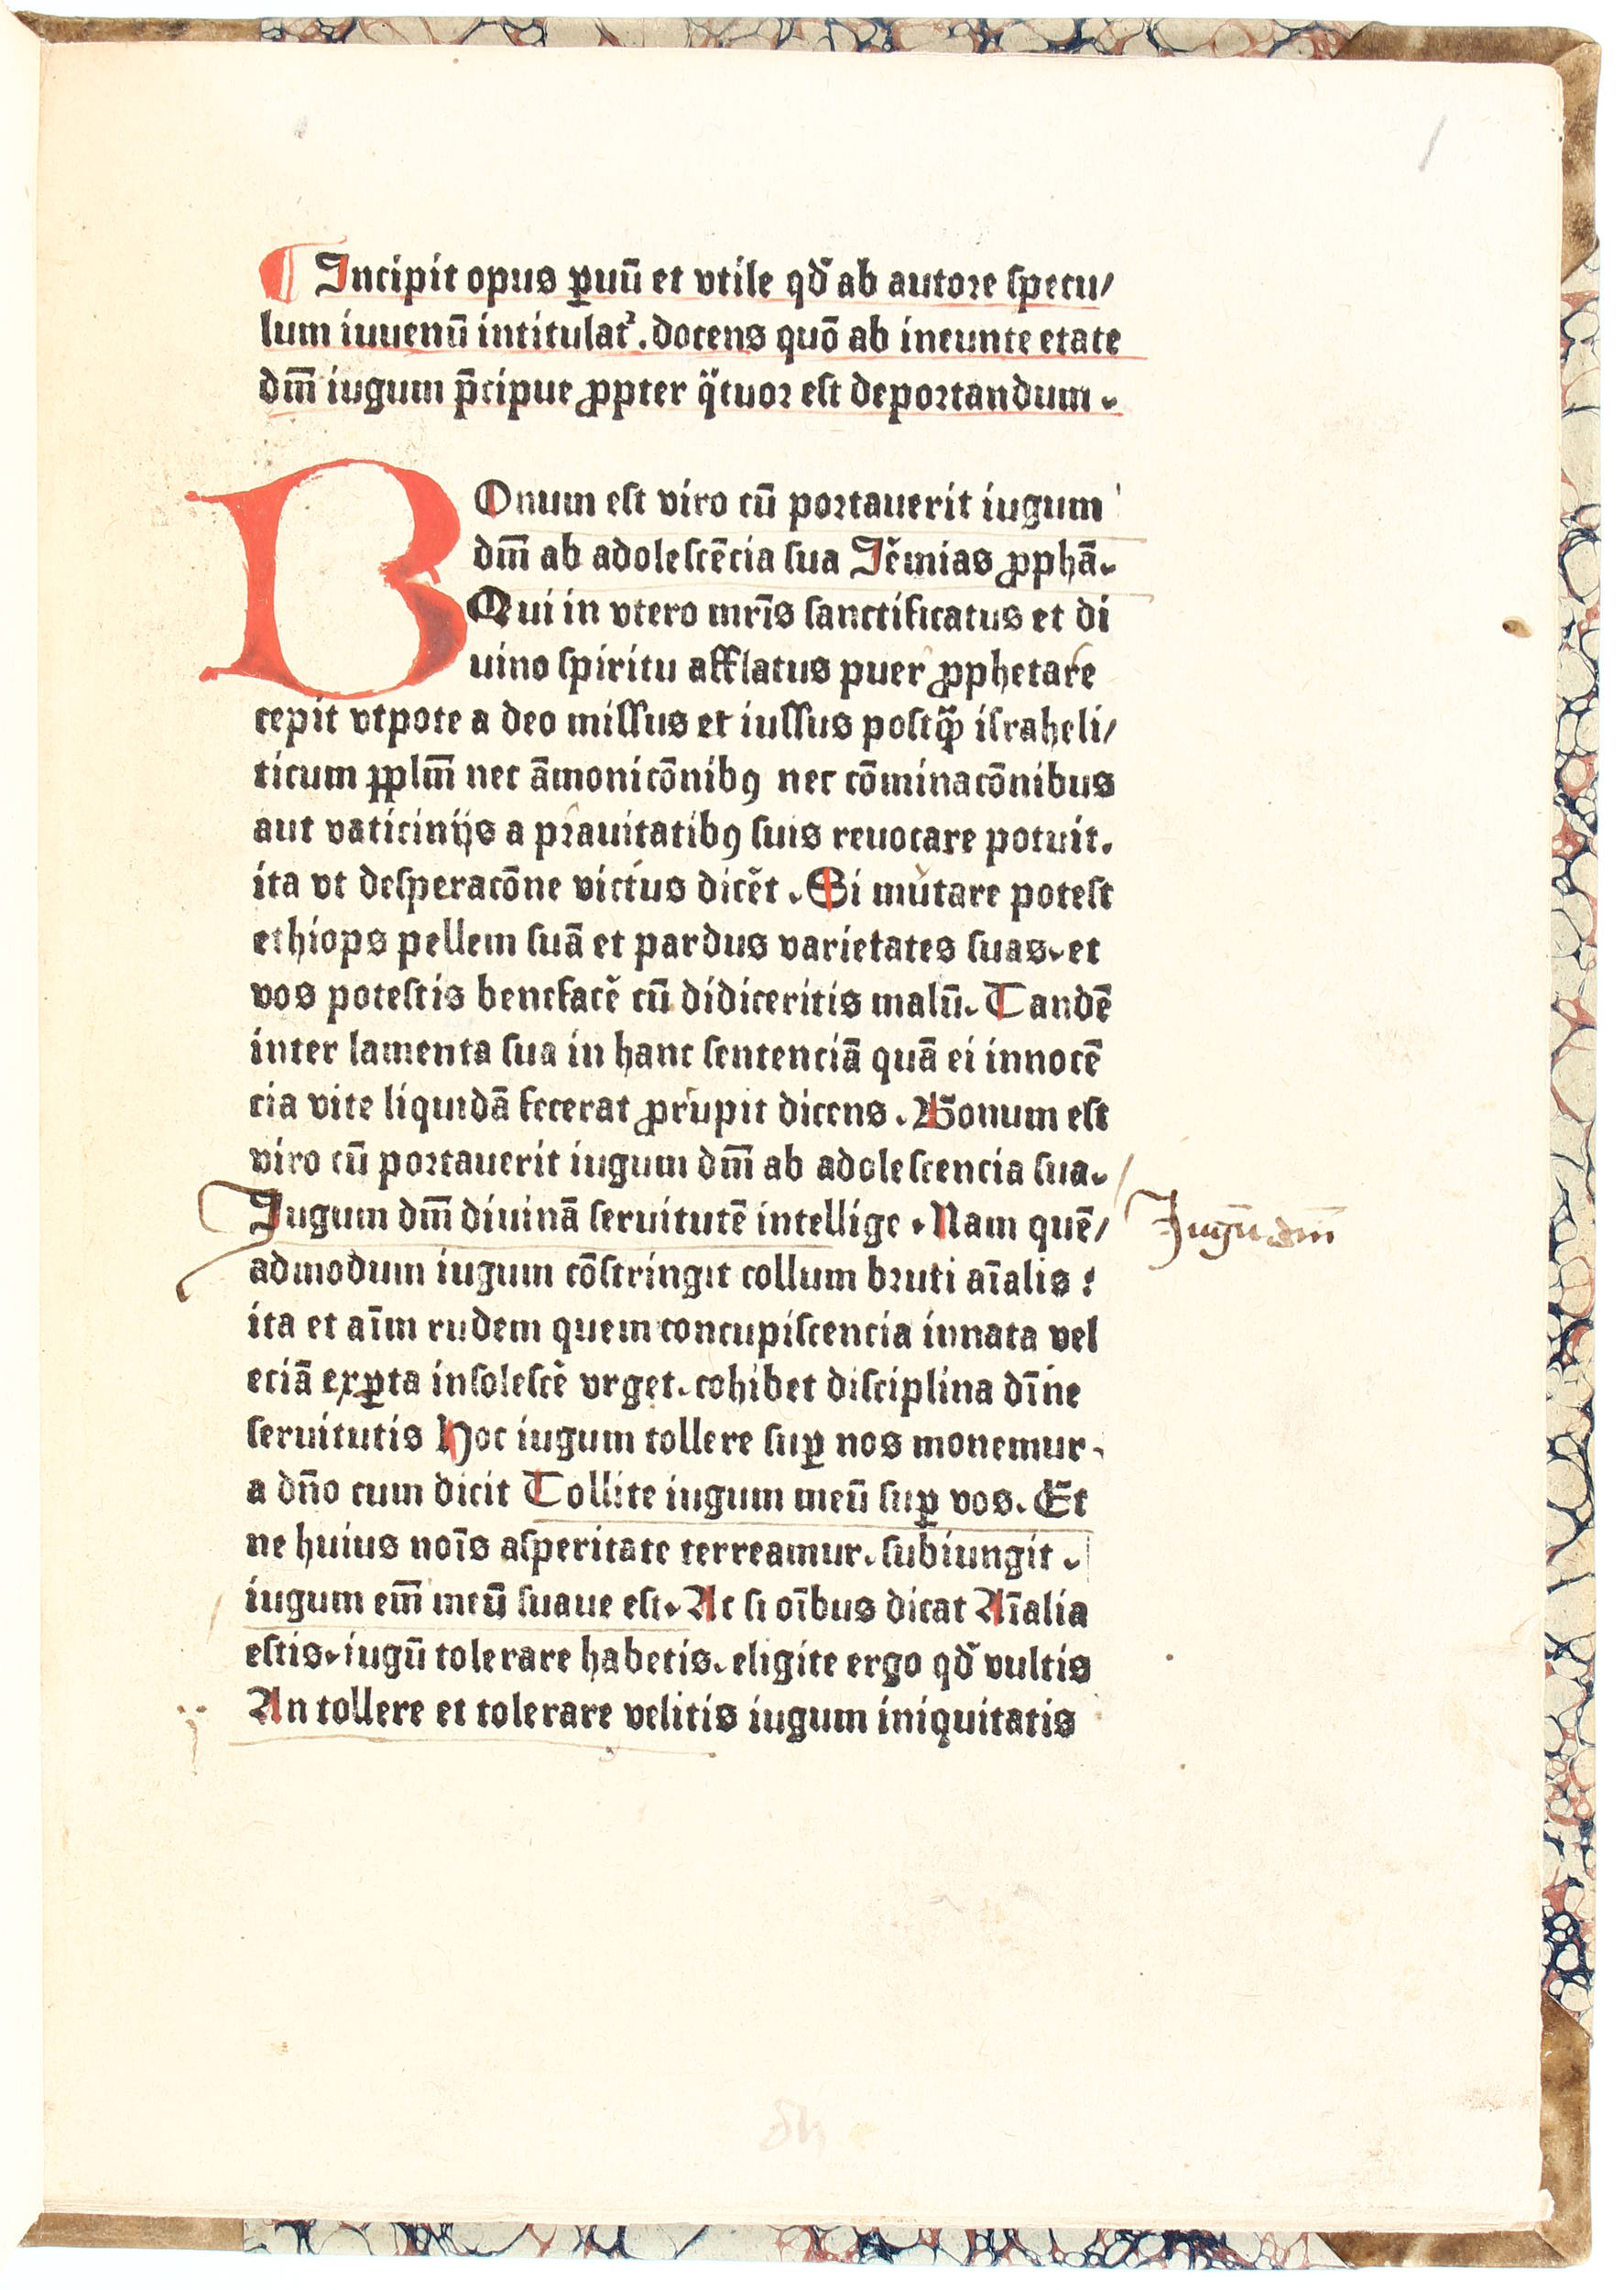 ¶ Incipit opus ꝑuū et vtile qđ ab autore ſpecu/
lum iuuenū intitulat᷑. docens quō ab ineunte etate
dm̄ iugum p̄cipue ꝓpter q̈tuor eſt deportandum.
BOnum eſt viro cū portauerit iugum
dm̄ ab adoleſcēcia ſua Iēmias ꝓphā.
Qui in vtero mr̄is ſanctificatus et di
uino ſpiritu afflatus puer ꝓphetare
cepit vtpote a deo miſſus et iuſſus poſtq̈ꝫ iſraheli/
ticum pplm̄ nec āmonicōnibꝰ nec cōminacōnibus
aut vaticinijs a prauitatibꝰ ſuis reuocare potuit.
ita vt deſperacōne victus dicēt. Si mutare poteſt
ethiops pellem ſuā et pardus varietates ſuas. et
vos poteſtis benefacē cū didiceritis malū. Tandē
inter lamenta ſua in hanc ſentenciā quā ei innocē
cia vite liquidā fecerat ꝓrupit dicens. Bonum eſt
viro cū portauerit iugum dm̄ ab adoleſcencia ſua.
Iugum dm̄ diuinā ſeruitutē intellige. Nam quē/
Iugū dm̄
admodum iugum cōſtringit collum bruti aīalis:
ita et aīm rudem quem concupiſcencia innata vel
eciā exꝑta inſoleſcē vrget. cohibet diſciplina dīne
ſeruitutis Hoc iugum tollere ſuꝑ nos monemur.
a dn̄o cum dicit Tollite iugum meū ſuꝑ vos. Et
ne huius noīs aſperitate terreamur. ſubiungit.
iugum em̄ meū ſuaue eſt. Ac ſi oībus dicat Aīalia
eſtis. iugū tolerare habetis. eligite ergo qđ vultis
An tollere et tolerare velitis iugum iniquitatis